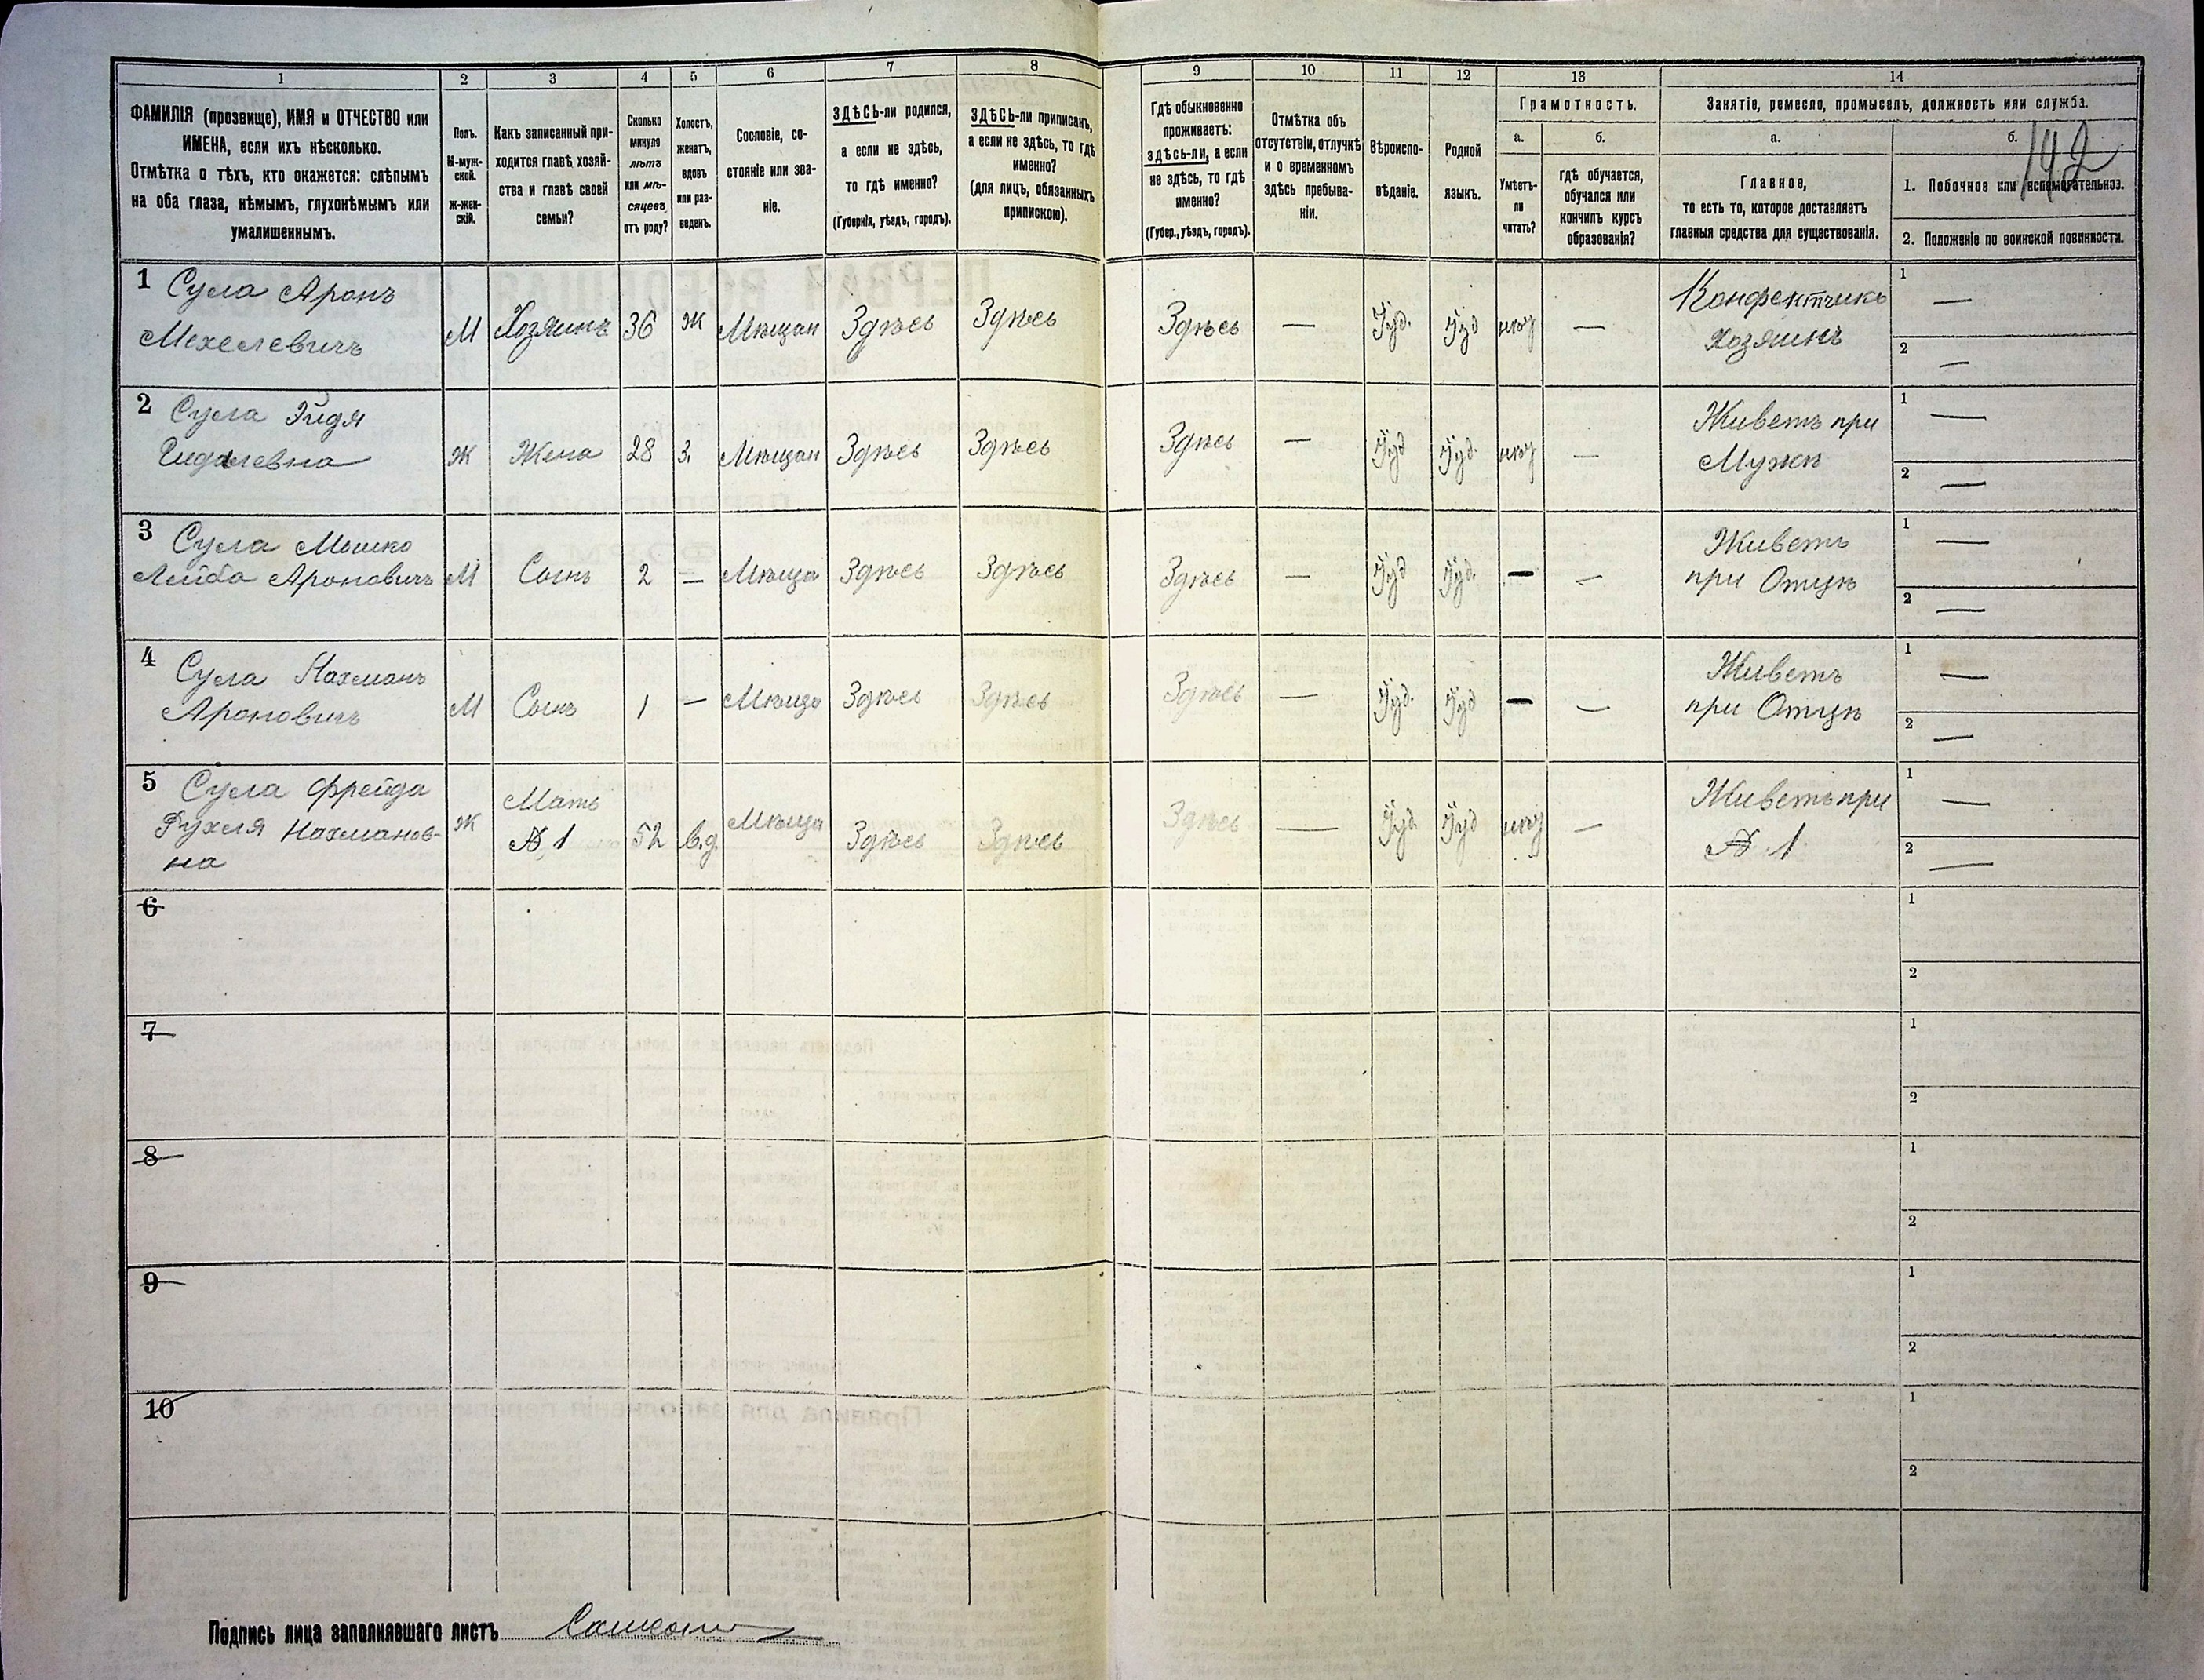 1 2 3 4 5 6 7 8 9 10 11 12 13 14
ФАМИЛІЯ (прозвище), ИМЯ и ОТЧЕСТВО или
ИМЕНА, если ихъ нѣсколько.
Отмѣтка о тѣхъ, кто окажется: слѣпымъ
на оба глаза, нѣмымъ, глухонѣмымъ или
умалишеннымъ.
Полъ.
М-муж-
ской.
Ж-жен-
скій.
Какъ записанный при-
ходится главѣ хозяй-
ства и главѣ своей
семьи?
Сколько
минуло
лѣтъ
или мѣ-
сяцевъ
отъ роду?
Холостъ,
женатъ,
вдовъ
или раз-
веденъ.
Сословіе, со-
стояніе или зва-
ніе.
ЗДѢСЬ-ли родился,
а если не здѣсь,
то гдѣ именно?
(Губернія, уѣздъ, городъ).
ЗДѢСЬ-ли приписанъ,
а если не здѣсь, то гдѣ
именно?
(для лицъ, обязанныхъ
припискою).
Гдѣ обыкновенно
проживаетъ:
здѣсь-ли, а если
не здѣсь, то гдѣ
именно?
(Губер., уѣздъ, городъ).
Отмѣтка объ
отсутствіи, отлучкѣ
и о временномъ
здѣсь пребыва-
ніи.
Вѣроиспо-
вѣданіе.
Родной
языкъ.
Грамотность.
а. б.
Умѣетъ-
ли
читать?
гдѣ обучается,
обучался или
кончилъ курсъ
образованія?
Занятіе, ремесло, промыселъ, должность или служба.
а. б.
192
Главное,
то есть то, которое доставляетъ
главныя средства для существованія.
1. Побочное или вспомогательное.
2. Положеніе по воинской повинности.
1 Сула Аронъ
Мехелевичъ
М Хозяинъ 36 Ж Мѣщан Здѣсь Здѣсь Здѣсь — Іуд. Іуд —
Конфектчикъ
Хозяинъ
1 —
2 —
2 Сула Эйдя
Гидалевна
Ж Жена 28 З. Мѣщан Здѣсь Здѣсь Здѣсь — Іуд Іуд. —
Живетъ при
Мужѣ
1 —
2 —
3 Сула Мошко
Лейба Ароновичъ
М Сынъ 2 — Мѣща Здѣсь Здѣсь Здѣсь — Іуд Іуд. — —
Живетъ
при Отцѣ
1 —
2 —
4 Сула Нахманъ
Ароновичъ
М Сынъ 1 — Мѣща Здѣсь Здѣсь Здѣсь — Іуд. Іуд — —
Живетъ
при Отцѣ
1 —
2 —
5 Сула Фрейда
Рухля Нахманов-
на
Ж
Мать
№ 1
52 Вд. Мѣща Здѣсь Здѣсь Здѣсь — Іуд. Іуд —
Живетъ при
№ 1
1 —
2 —
6
1
2
7
1
2
8
1
2
9
1
2
10
1
2
Подпись лица заполнявшаго листъ